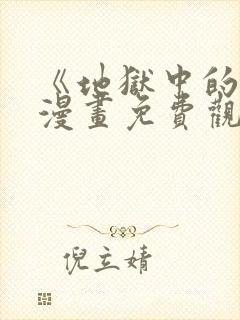 《地獄中的
漫畫免費觀
倪立婧